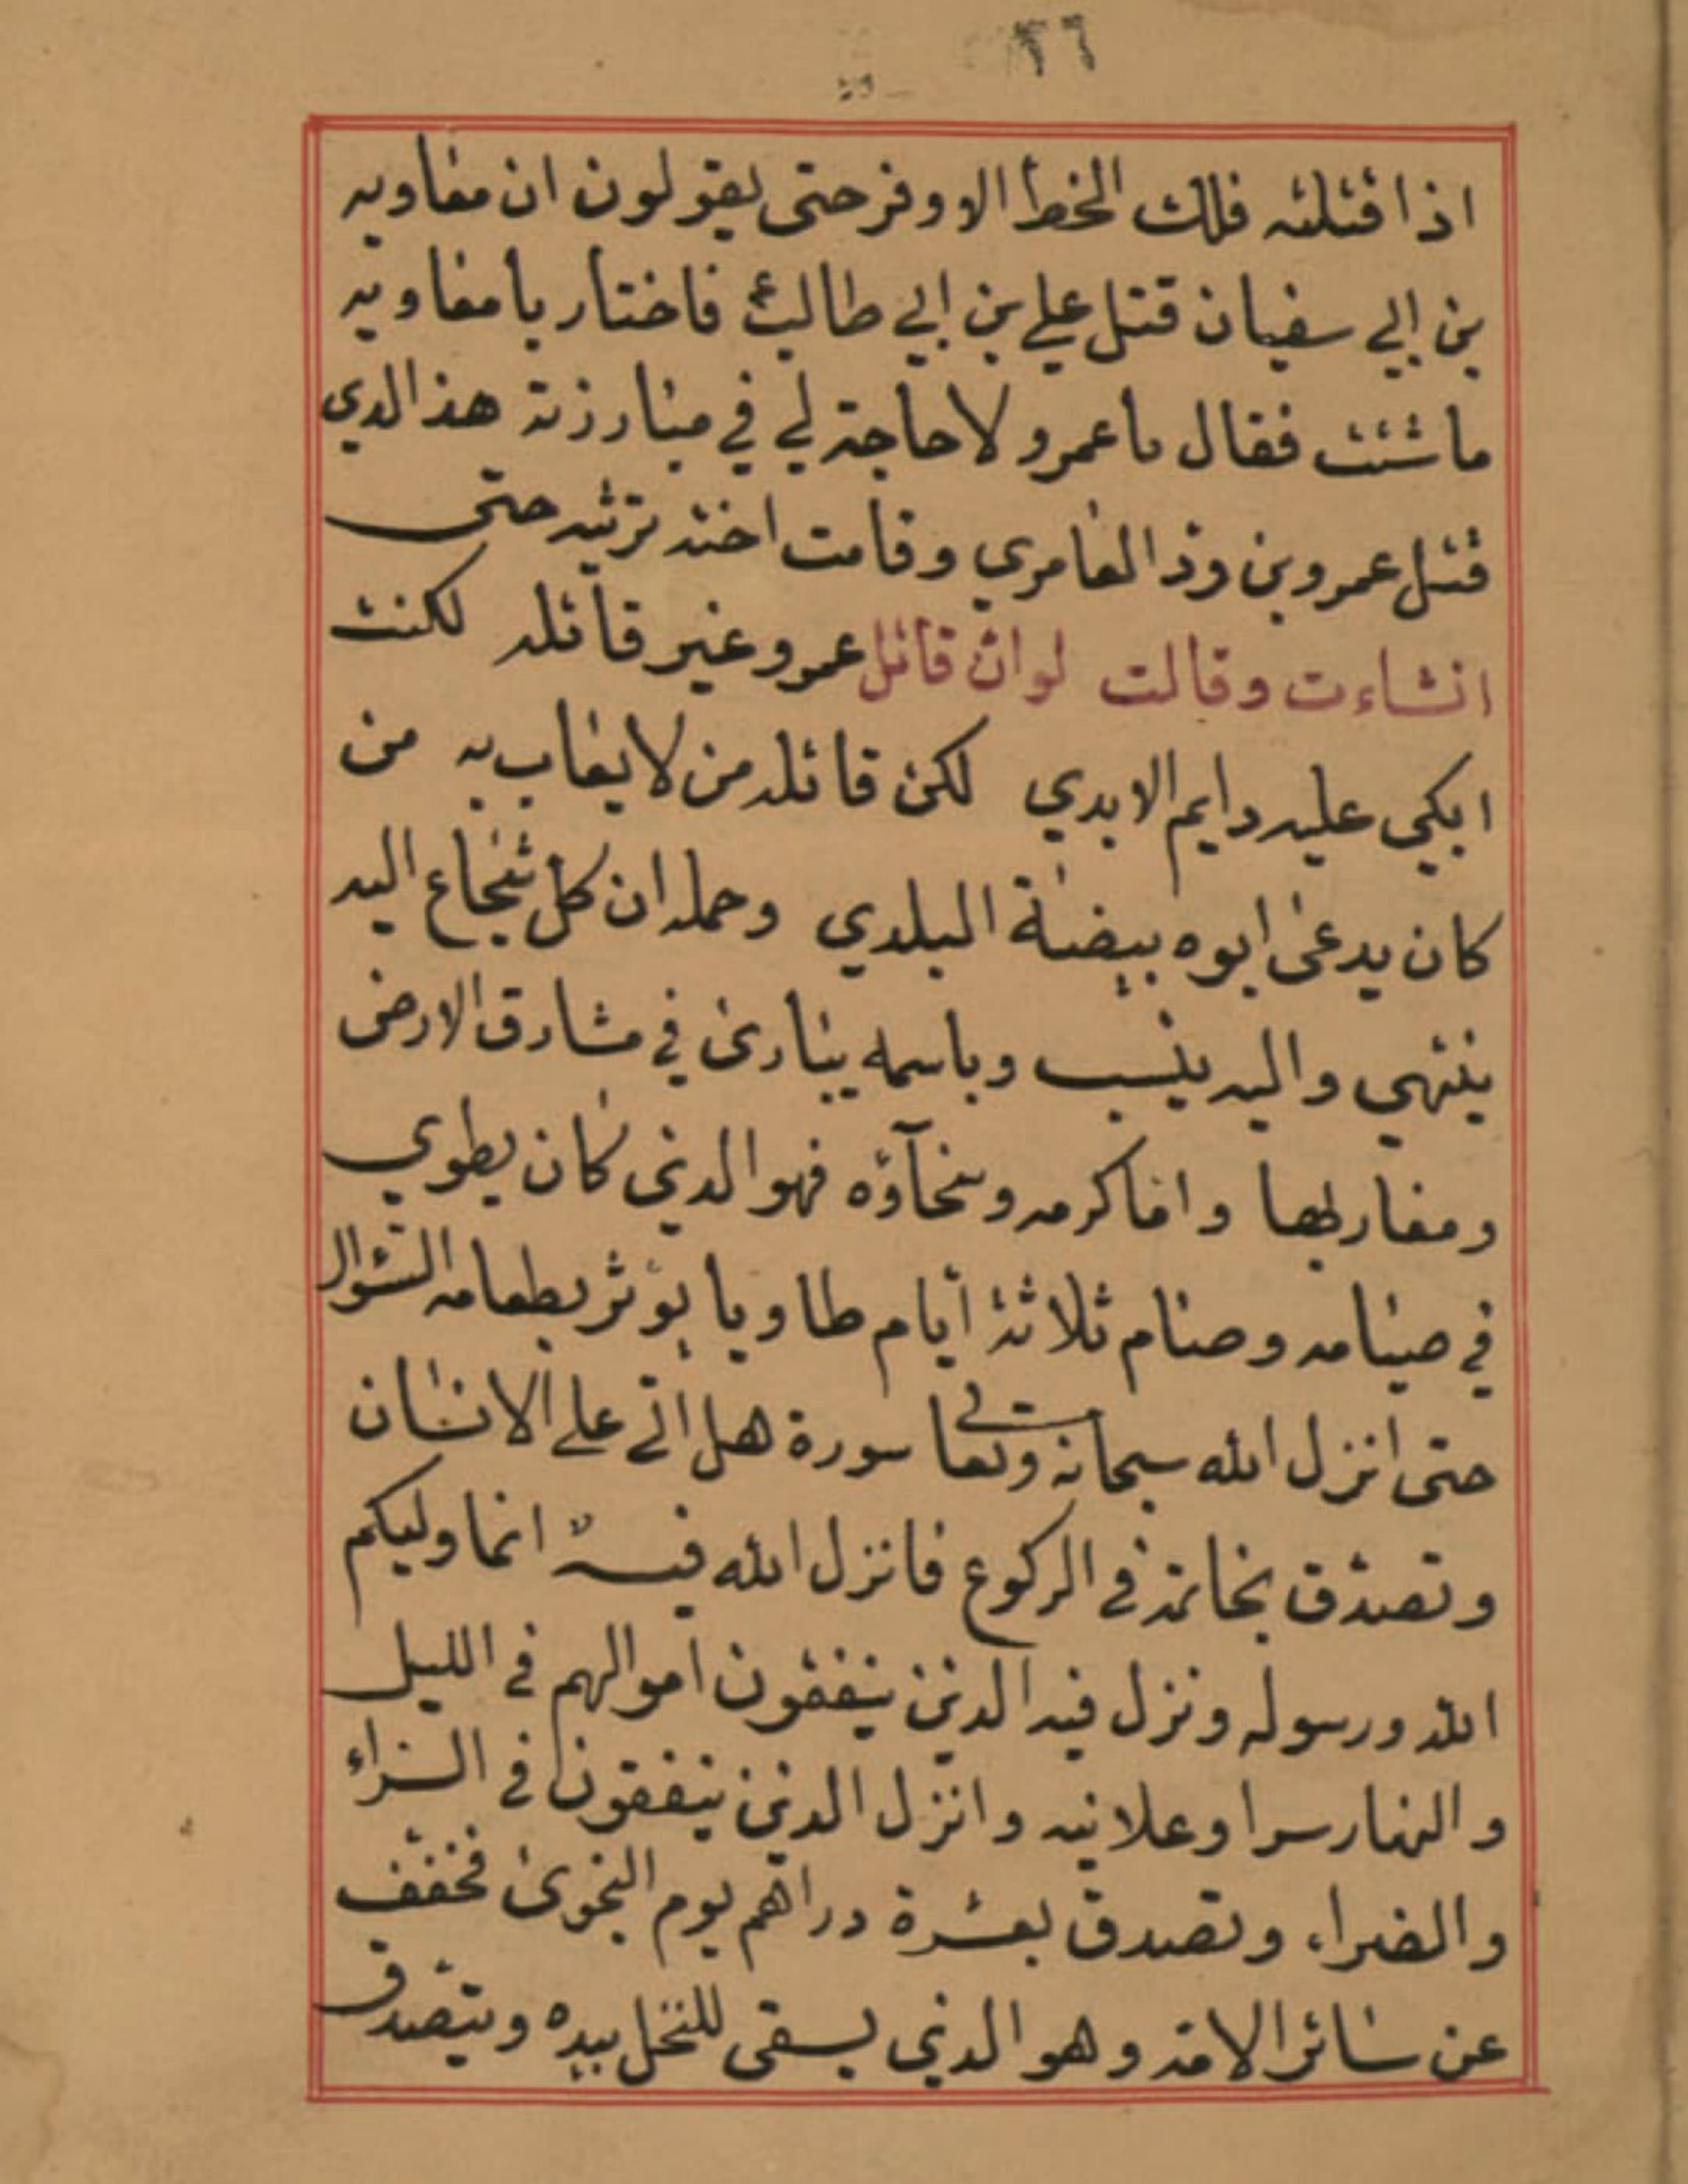 ٢٦
اذا قتلته فلك الخط الاوفر حتى يقولون ان معاويه
بن ابي سفيان قتل علي بن ابي طالب ع فاختار يا معاويه
ما شئت فقال يا عمرو لا حاجة لي في مبارزته هذ الدي
قتل عمرو بن وذ العامري وقامت اخته ترثيه حتى
انشاءت وقالت لو ان قاتل عمرو غير قاتله لكنت
ابكي عليه دايم الابدي لكن قاتله من لا يعاب به من
كان يدعى ابوه بيضة البلدي وحمله ان كل شجاع اليه
ينتهي واليه ينسب وباسمه ينادى في مشارق الارض
ومغاربها واما كرمه وسخآؤه فهو الذي كان يطوي
في صيامه وصام ثلاثة أيام طاويا يؤثر بطعامه السؤال
حتى انزل الله سبحانه وتعالى سورة هل اتى على الانسان
وتصدق بخاتمه في الركوع فانزل الله فيه انما وليكم
الله ورسوله ونزل فيه الذين ينفقون اموالهم في الليل
والنهار سرا وعلانيه وانزل الذين ينفقون في السراء
والضراء وتصدق بعشرة دراهم يوم النجوى فخفف
عن سائر الامة وهو الذي يسقى للنخل بيده ويتصدق